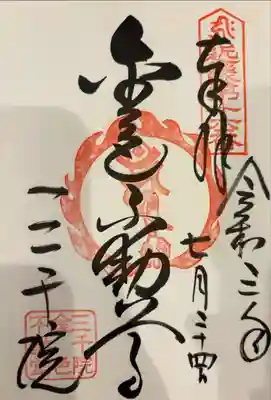 奉拝
令和三年
七月二十四日
金色不動尊
三千院
三千院
金色
不動堂